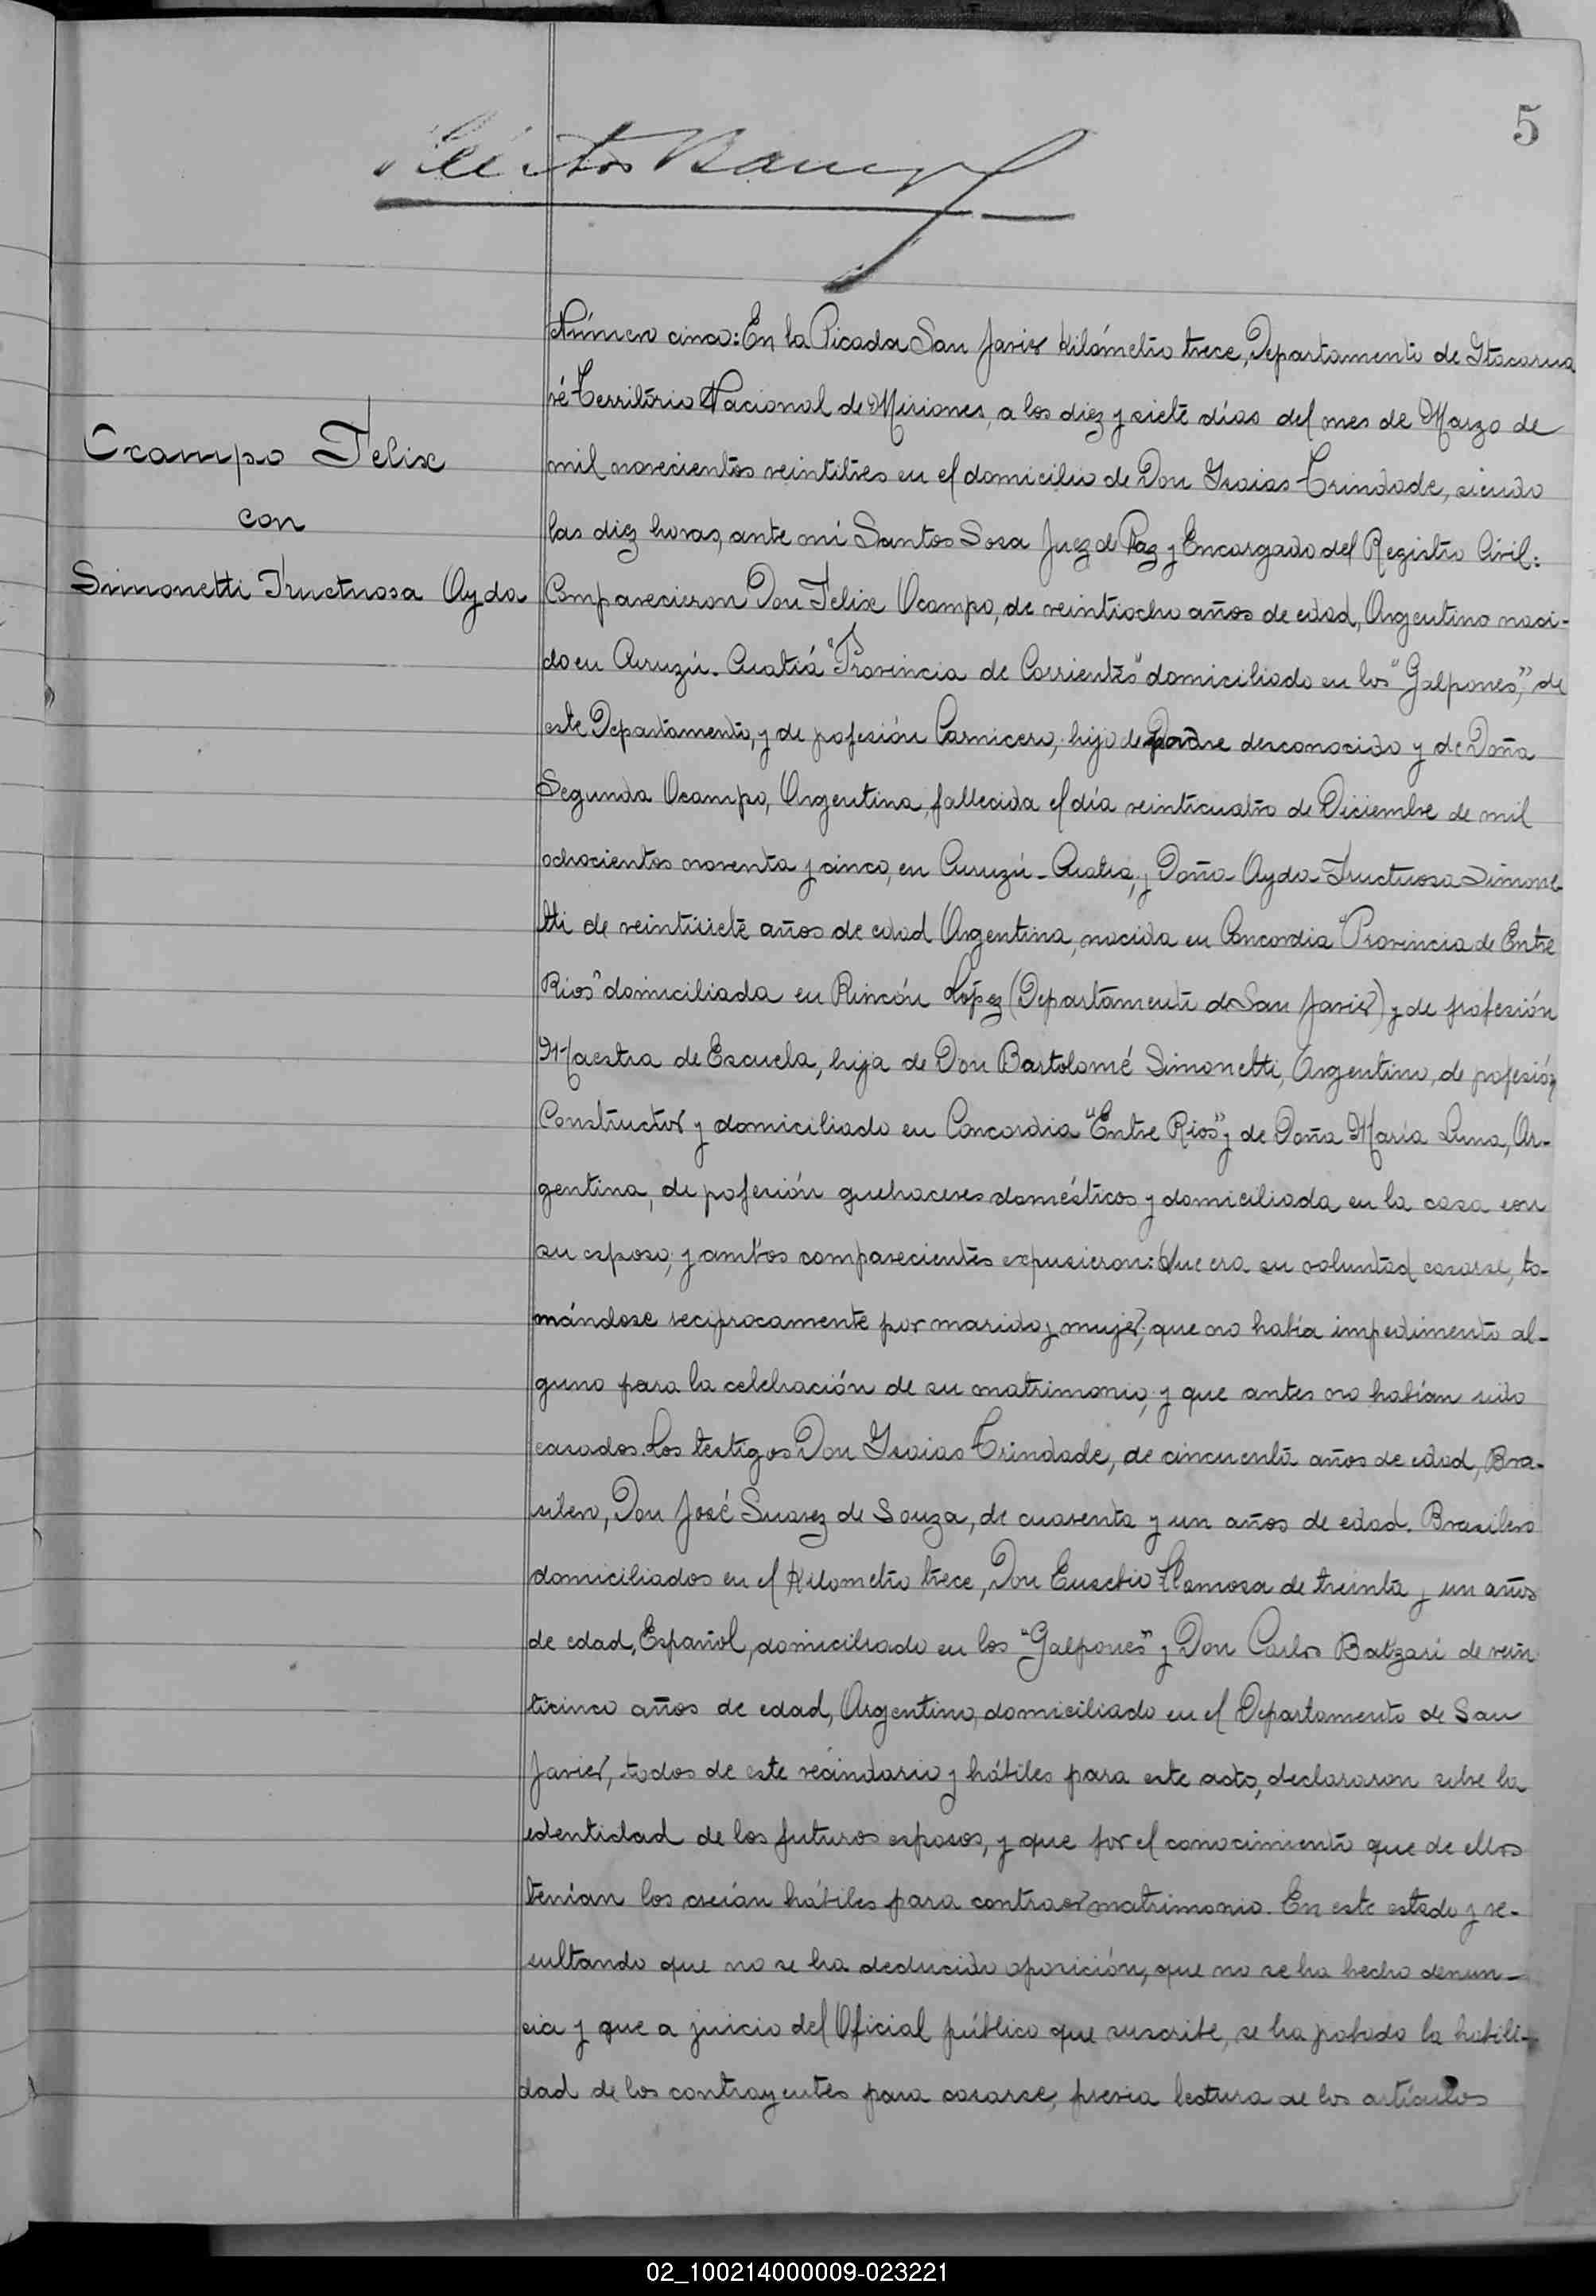 5
Número cinco: En la Picada San Javier kilómetro trece, Departamento de Itacarua
ré Territorio Nacional de Misiones, a los diez y siete días del mes de Marzo de
Ocampo Felix
mil novecientos veintitres en el domicilio de Don Isaias Trindade, siendo
con
las diez horas, ante mi Santos Sosa Juez de Paz y Encargado del Registro Civil:
Simonetti Fructuosa Ayda
Comparecieron Don Felix Ocampo, de veintiocho años de edad, Argentino naci-
do en Curuzú-Cuatiá "Provincia de Corrientes" domiciliado en los "Galpones", de
este Departamento, y de profesión Carnicero, hijo de padre desconocido y de Doña
Segunda Ocampo, Argentina, fallecida el día veinticuatro de Diciembre de mil
ochocientos noventa y cinco, en Curuzú-Cuatiá, y Doña Ayda Fructuosa Simone-
tti de veintisiete años de edad Argentina, nacida en Concordia "Provincia de Entre
Rios" domiciliada en Rincón López (Departamento de San Javier) y de profesión
Maestra de Escuela, hija de Don Bartolomé Simonetti, Argentino, de pofesión
Constructor y domiciliado en Concordia "Entre Rios" y de Doña María Luna, Ar-
gentina, de pofesión quehaceres domésticos y domiciliada en la casa con
su esposo; y ambos comparecientes expusieron: Que era su voluntad casarse, to-
mándose reciprocamente por marido y mujer; que no había impedimento al-
guno para la celebración de su matrimonio, y que antes no habían sido
casados. Los testigos Don Isaias Trindade, de cincuenta años de edad, Bra-
silero, Don José Suarez de Souza, de cuarenta y un años de edad. Brasilero
domiciliados en el Kilometro trece, Don Eusebio Llamosa de treinta y un años
de edad, Español, domiciliado en los "Galpones" y Don Carlos Batzari de vein
ticinco años de edad, Argentino, domiciliado en el Departamento de San
Javier, todos de este vecindario y hábiles para este acto, declararon sobre la
identidad de los futuros esposos, y que por el conocimiento que de ellos
tenían los creían hábiles para contraer matrimonio. En este estado y re-
sultando que no se ha deducido oposición, que no se ha hecho denun-
cia y que a juicio del Oficial público que suscribe, se ha pobado la habili-
dad de los contrayentes para casarse, previa lectura de los artículos
02_100214000009-023221